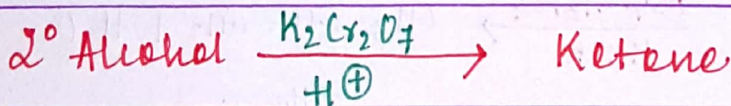 2° Alcohol K₂Cr₂O₇ → Ketone
H⊕